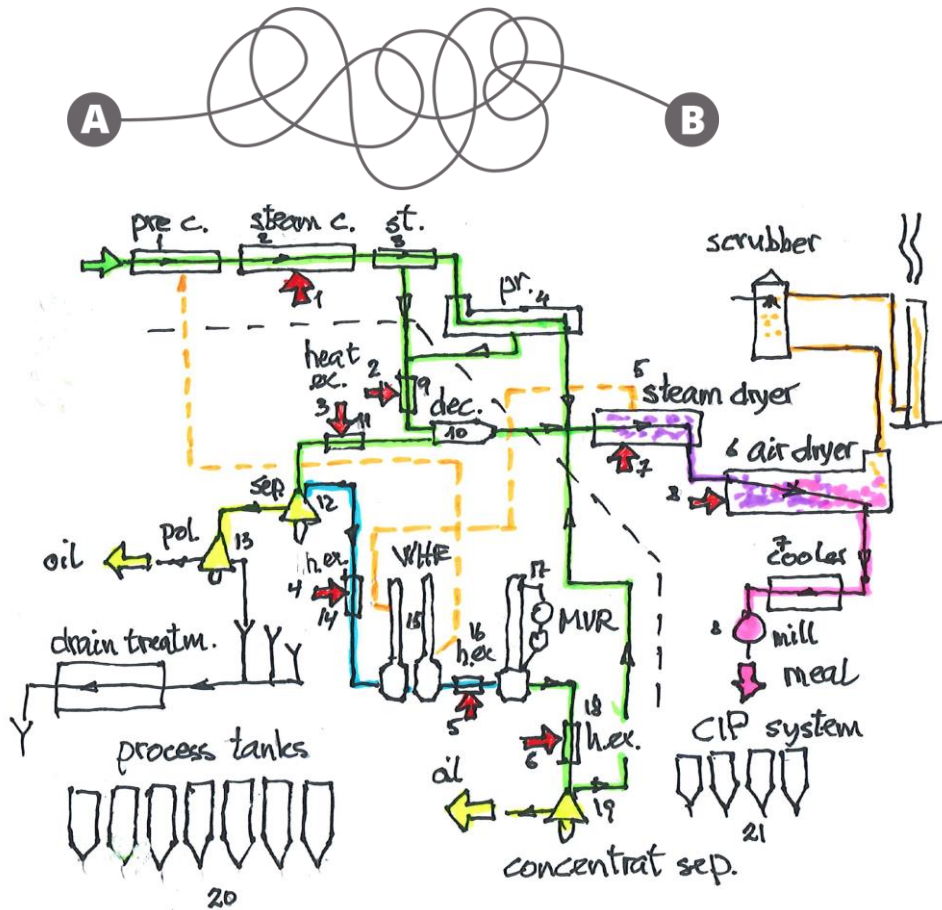 A
B
pre c.
1
steam c.
2
st.
3
1
pr.
4
scrubber
heat
ex.
2
9
3
11
dec.
10
5
steam dryer
7
6 air dryer
8
sep.
12
pol.
13
oil
h.ex.
4
14
WHE
15
16
h.ex
5
17
MVR
7
cooler
8
mill
meal
drain treatm.
18
h.ex.
6
oil
19
concentrat sep.
process tanks
20
CIP system
21